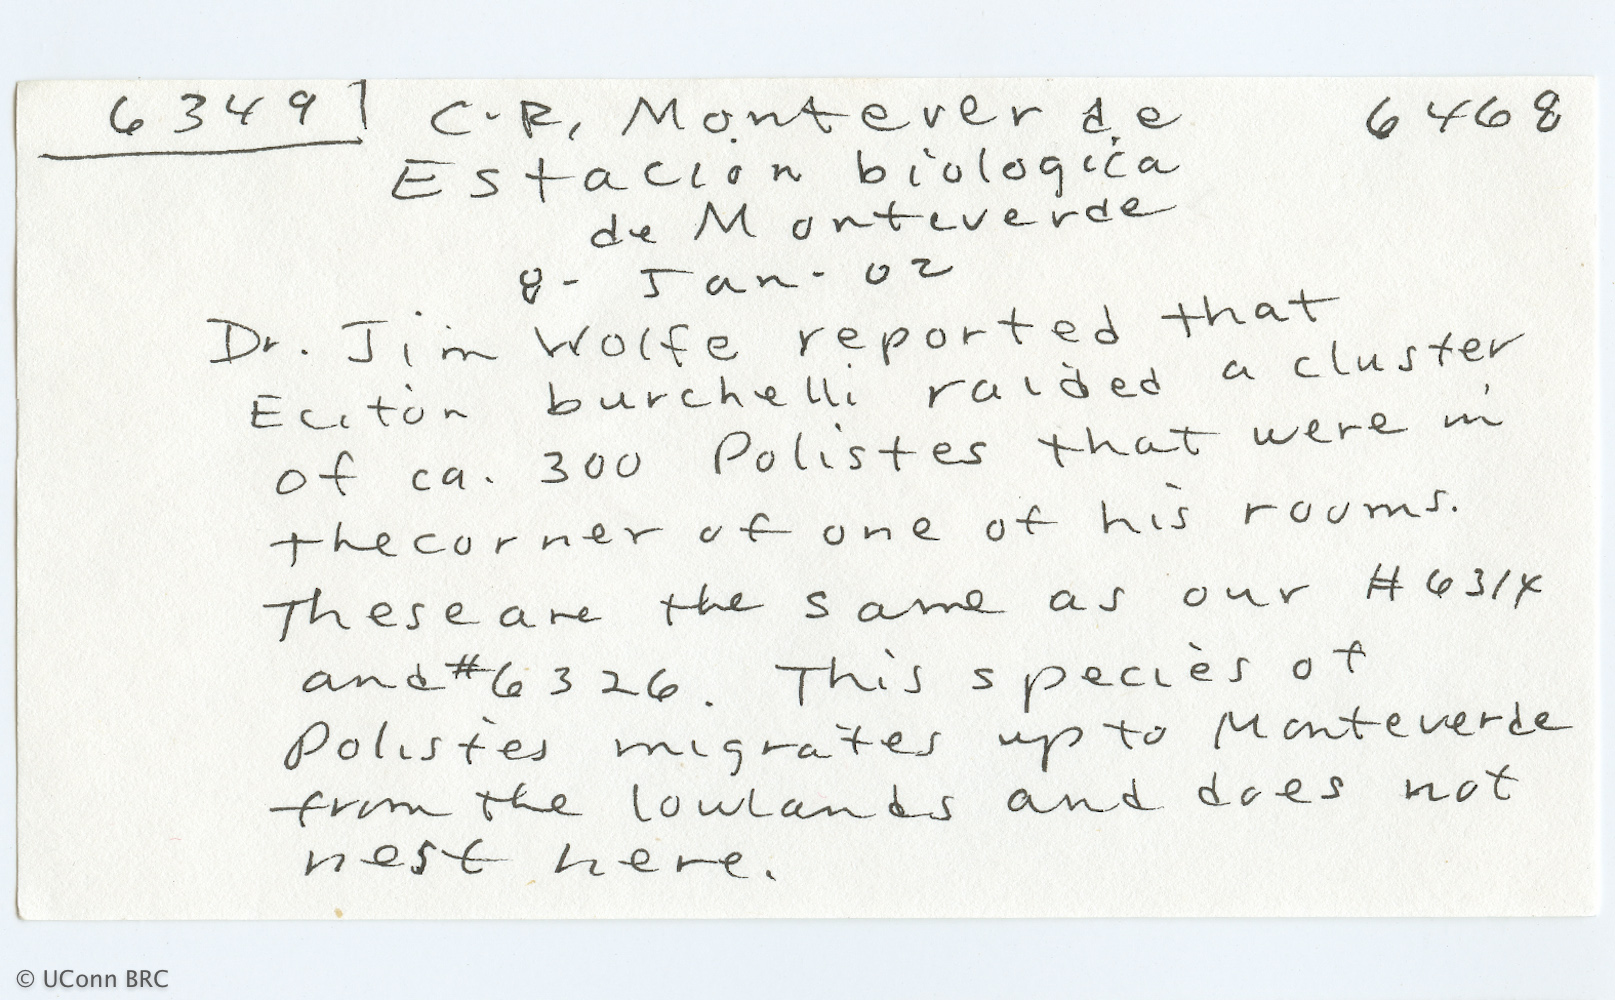 6349 C.R, Monteverde 6468
Estación biologica
de Monteverde
8-Jan-02
Dr. Jim Wolfe reported that
Eciton burchelli raided a cluster
of ca. 300 Polistes that were in
the corner of one of his rooms.
These are the same as our #6314
and #6326. This species of
Polistes migrates up to Monteverde
from the lowlands and does not
nest here.
© UConn BRC